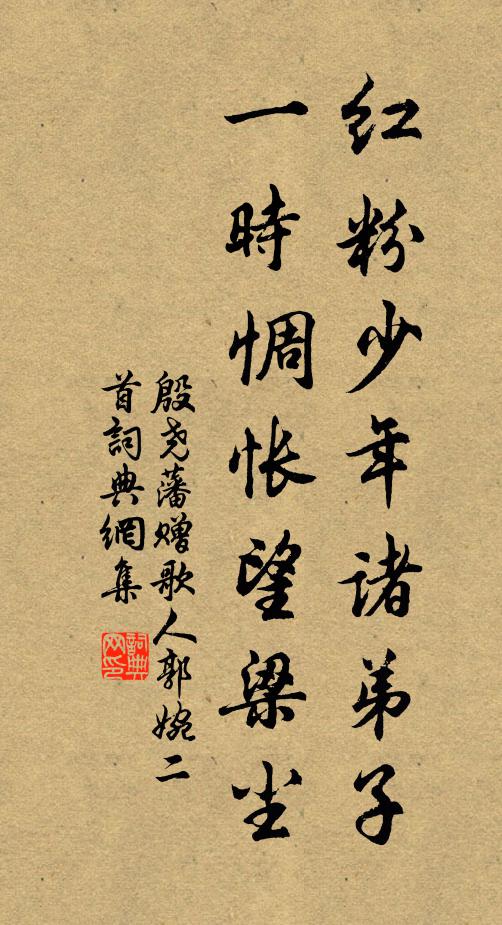 红粉少年诸弟子
一時惆怅望梁尘
殷尧藩赠歌人郭婉二
首詞典網集
詞典
网印